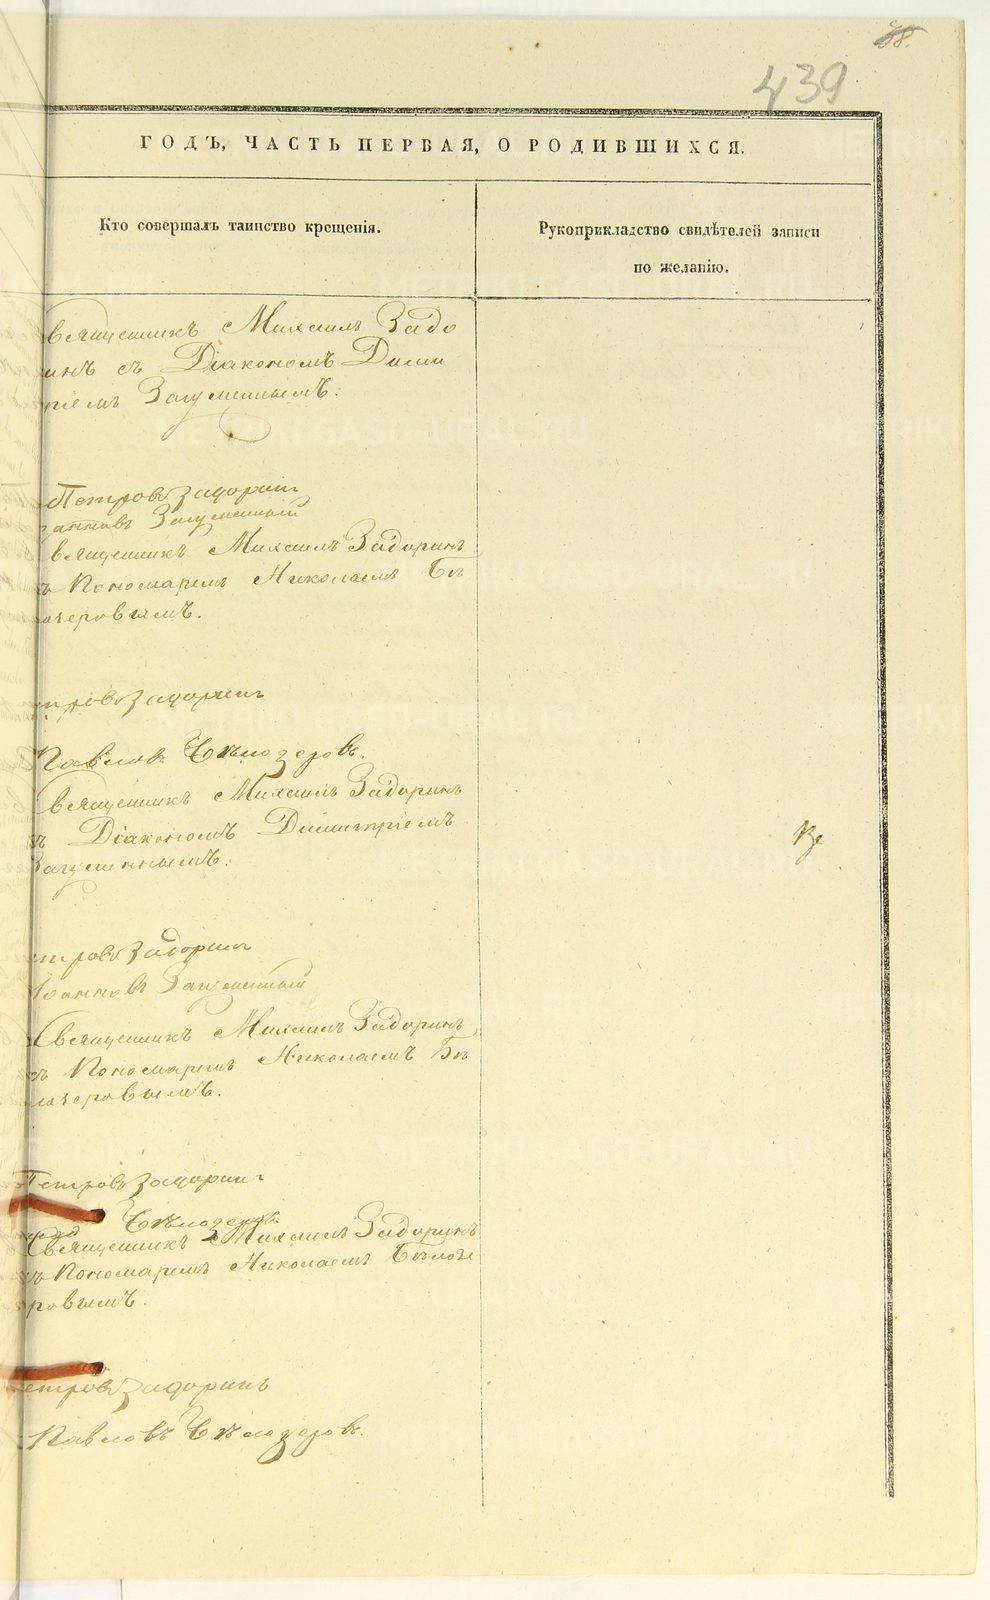 38.
439
ГОДЪ, ЧАСТЬ ПЕРВАЯ, О РОДИВШИХСЯ.
Кто совершалъ таинство крещенія.
Рукоприкладство свидѣтелей записи
по желанію.
Священникъ Михаилъ Задо
инъ съ Діакономъ Дими
тріемъ Загуменнымъ.
Петровъ Задоринъ
Загуменный
Священникъ Михаилъ Задоринъ
съ Пономаремъ Николаемъ Бѣ
лозеровымъ.
Петровъ Задоринъ
Павловъ Бѣлозеровъ.
Священникъ Михаилъ Задоринъ
съ Діакономъ Димитріемъ
Загуменнымъ.
Петровъ Задоринъ
Іоанновъ Загуменный
Священникъ Михаилъ Задоринъ
съ Пономаремъ Николаемъ Бѣ
лозеровымъ.
Петровъ Задоринъ
Бѣлозеровъ
Священникъ Михаилъ Задоринъ
съ Пономаремъ Николаемъ Бѣлозе
ровымъ.
Петровъ Задоринъ
Павловъ Бѣлозеровъ.
METRIKI.GASO-URAL.RU